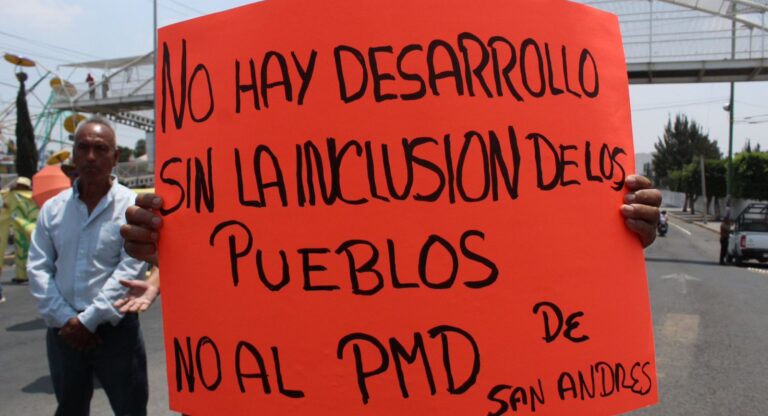 NO HAY DESARROLLO
SIN LA INCLUSION DE LOS
PUEBLOS
NO AL PMD DE
SAN ANDRES